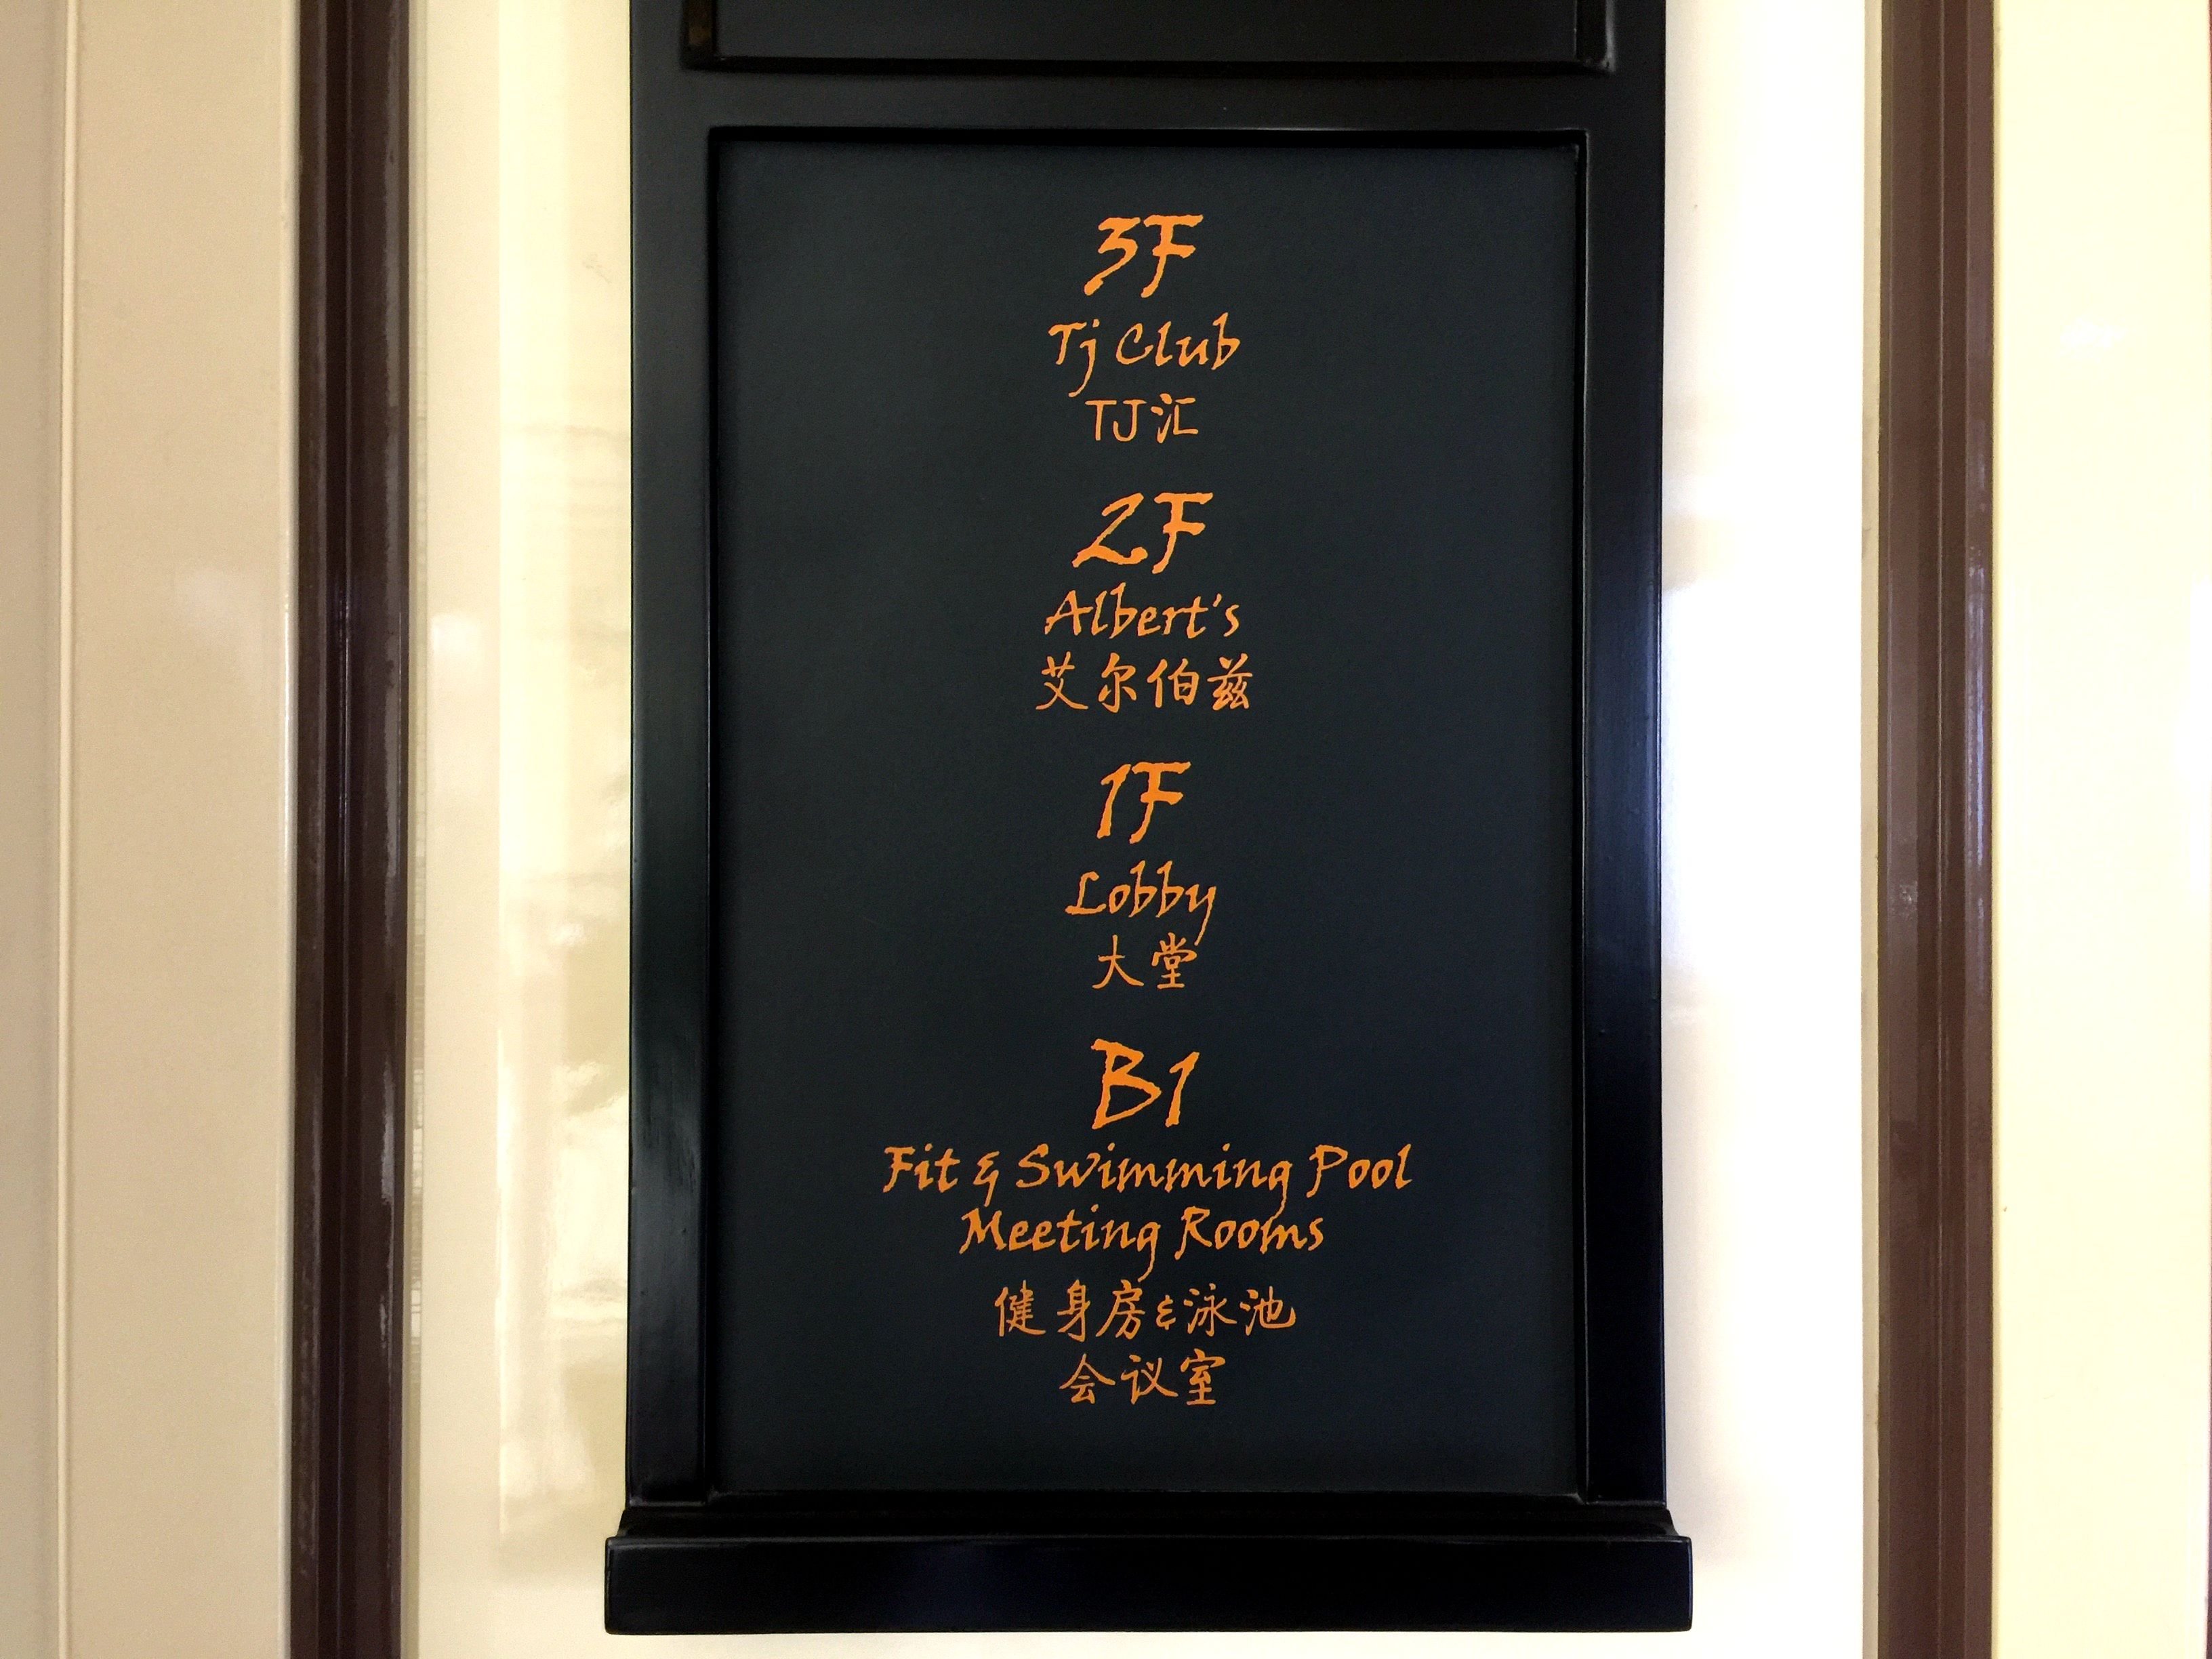 3F
Tj Club
TJ汇
2F
Albert's
艾尔伯兹
1F
Lobby
大堂
B1
Fit & Swimming Pool
Meeting Rooms
健身房&泳池
会议室